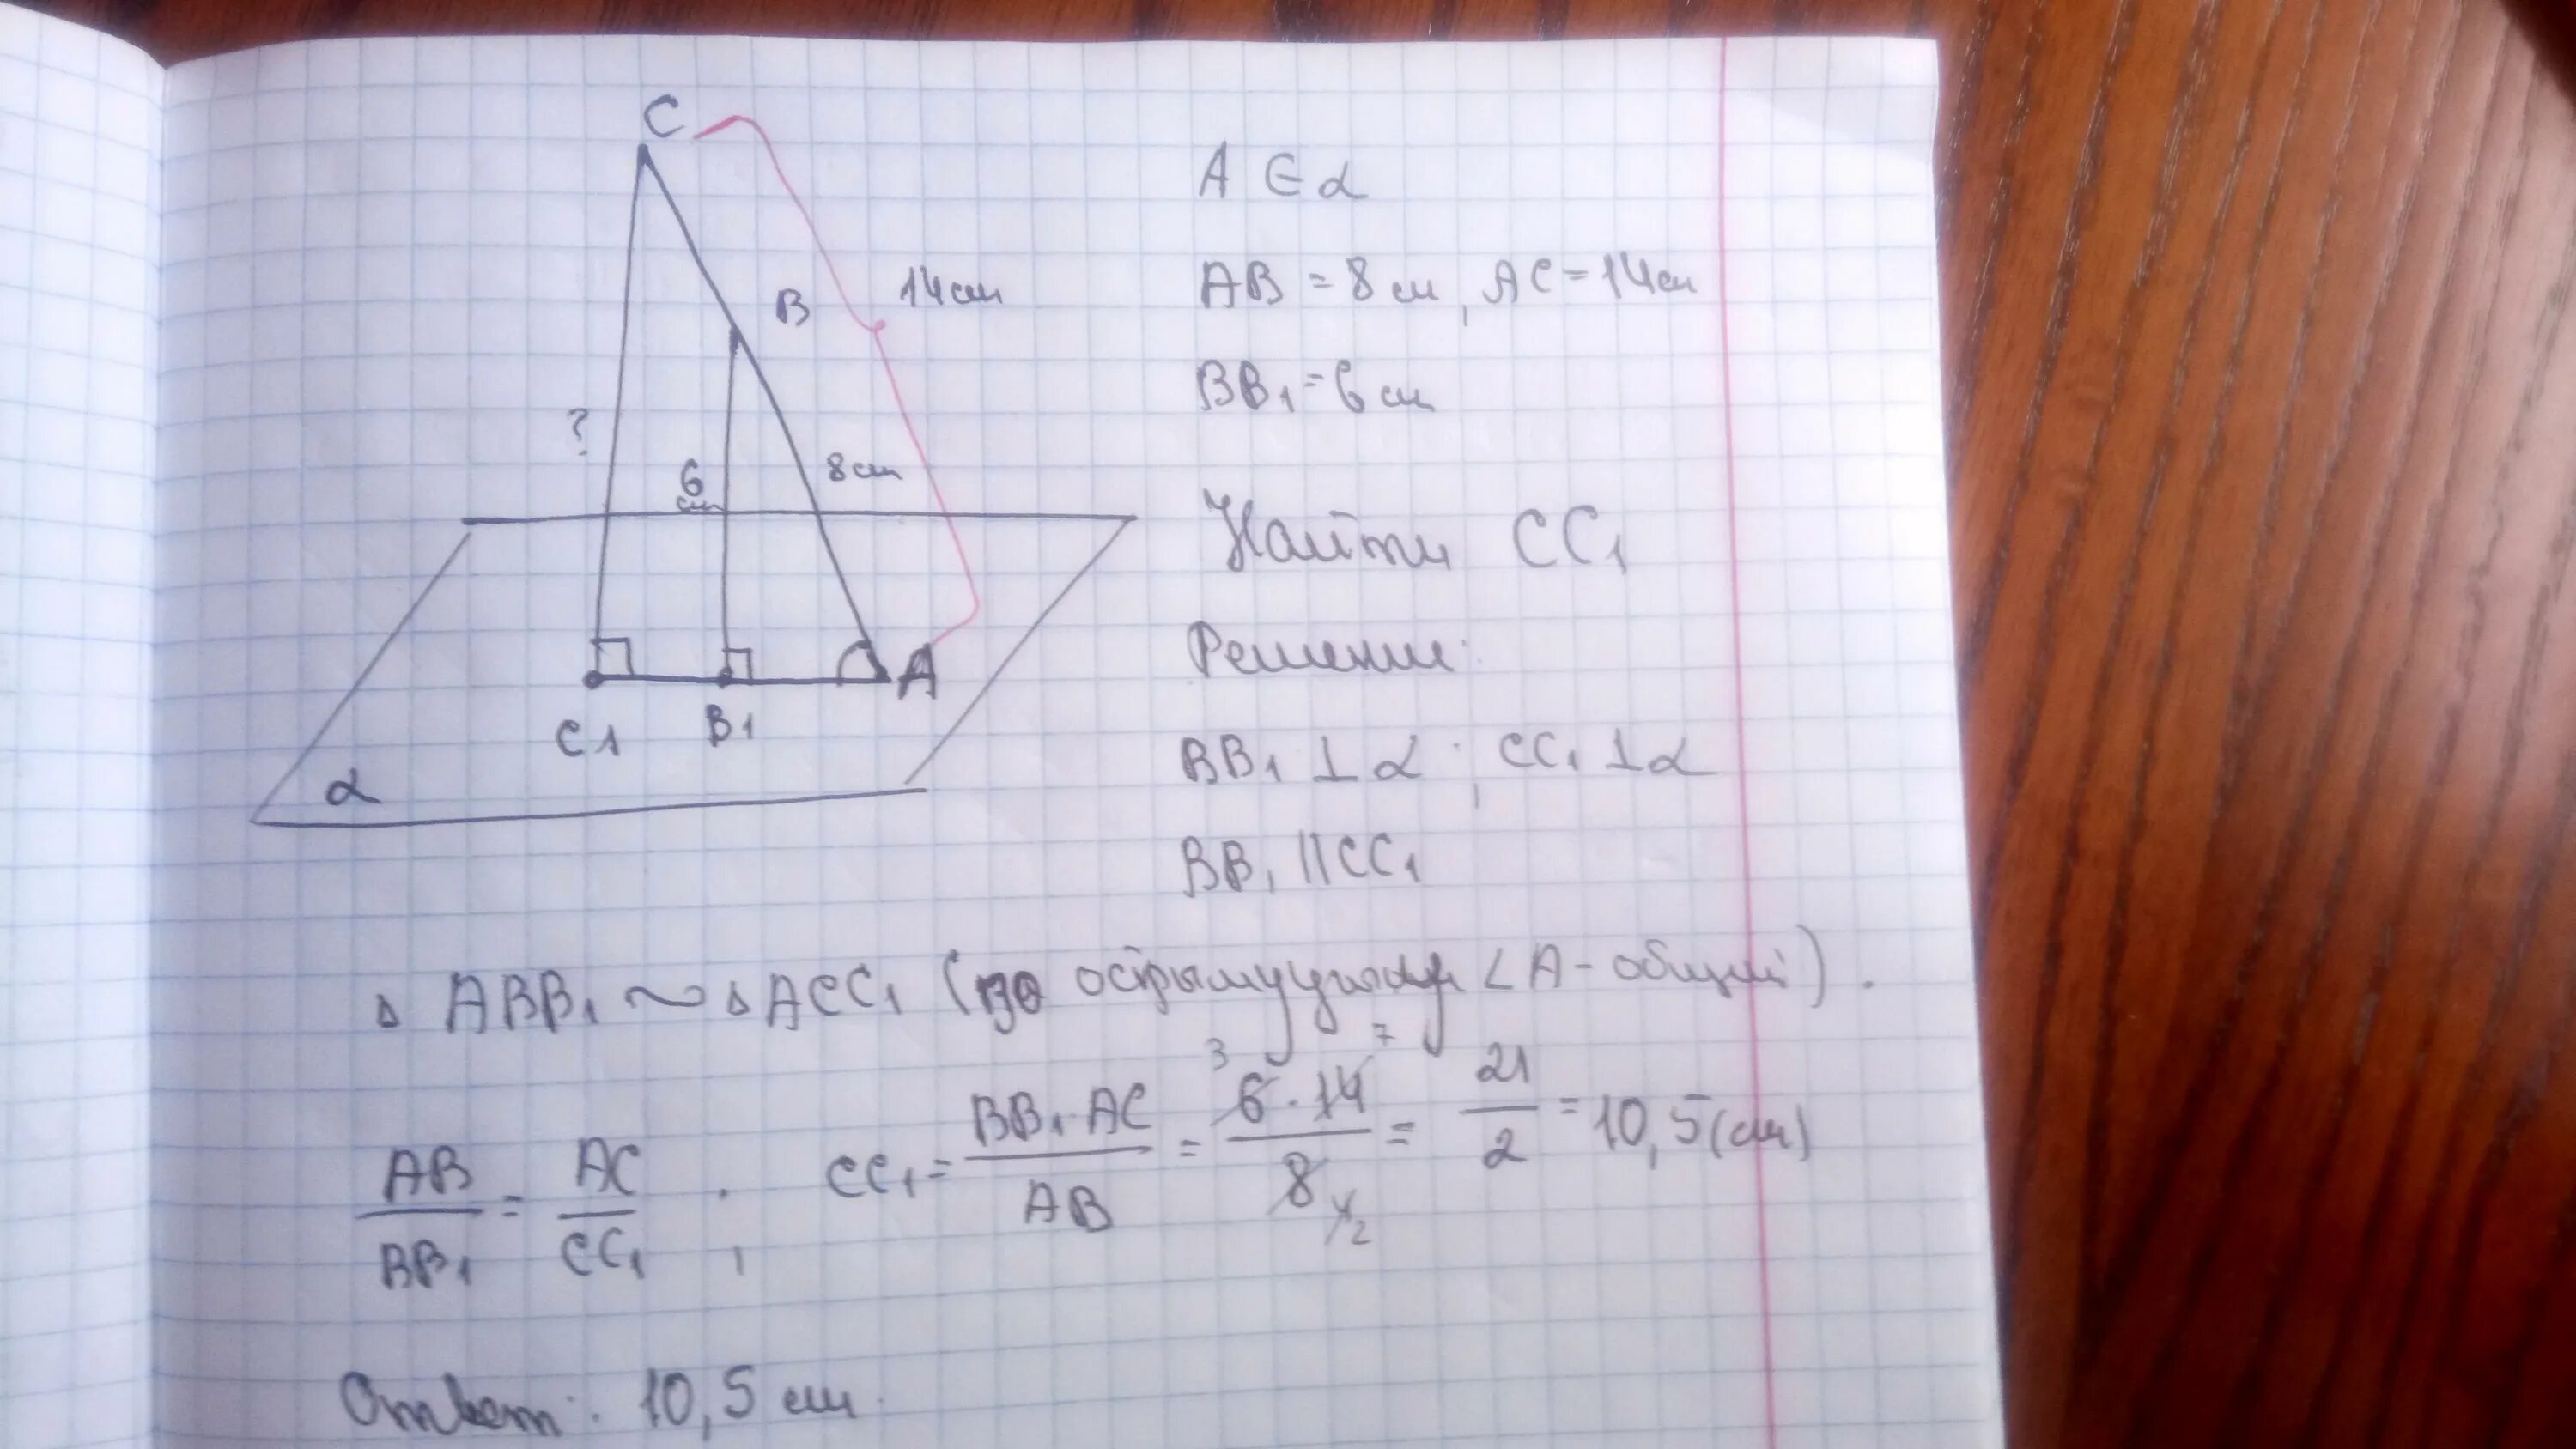 C
B
14 см
?
6 см
8 см
A
C1
B1
α
A ∈ α
AB = 8 см, AC = 14 см
BB₁ = 6 см
Найти CC₁
Решение:
BB₁ ⊥ α ; CC₁ ⊥ α
BB₁ || CC₁
△ ABB₁ ~ △ ACC₁ (по острому углу ∠A - общий).
AB/BB₁ = AC/CC₁ ; CC₁ = BB₁·AC/AB = 6·14/8 = 21/2 = 10,5 (см)
3 7
4 2
Ответ: 10,5 см.